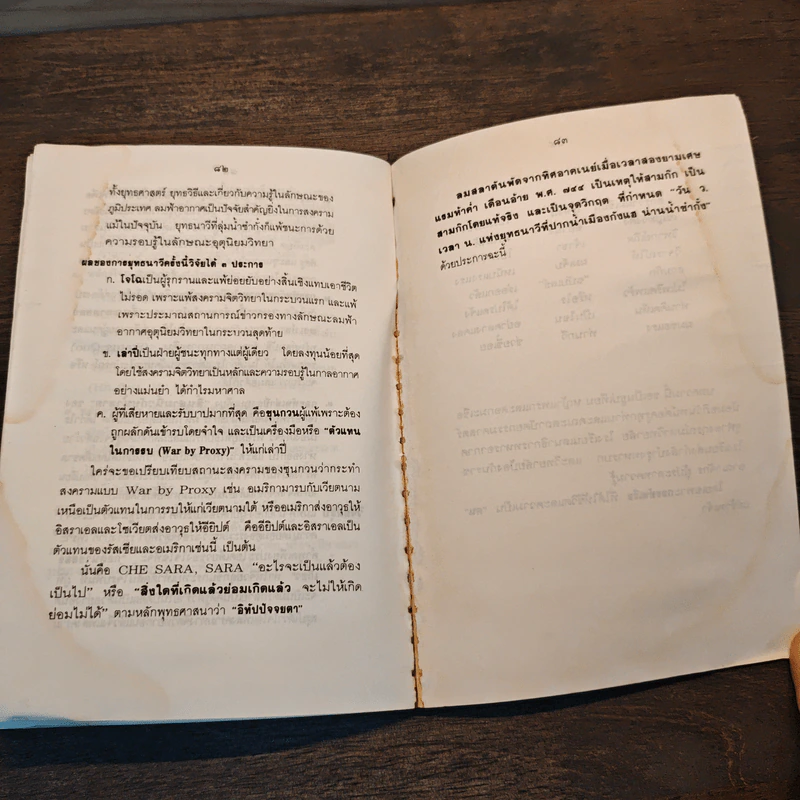 ๘๒
ทั้งยุทธศาสตร์ ยุทธวิธีและเกี่ยวกับความรู้ในลักษณะของ
ภูมิประเทศ ลมฟ้าอากาศเป็นปัจจัยสำคัญยิ่งในการสงคราม
แม้ในปัจจุบัน ยุทธนาวีที่ลุ่มน้ำซำกั๋งก็แพ้ชนะการด้วย
ความรอบรู้ในลักษณะอุตุนิยมวิทยา
ผลของการยุทธนาวีครั้งนี้วิจัยได้ ๓ ประการ
ก. โจโฉเป็นผู้รุกรานและพ่ายแพ้ย่อยยับอย่างสิ้นเชิงแทบเอาชีวิต
ไม่รอด เพราะแพ้สงครามจิตวิทยาในกระบวนแรก และแพ้
เพราะประมาณสถานการณ์ข่าวกรองทางลักษณะลมฟ้า
อากาศอุตุนิยมวิทยาในกระบวนสุดท้าย
ข. เล่าปี่เป็นฝ่ายผู้ชนะทุกทางแต่ผู้เดียว โดยลงทุนน้อยที่สุด
โดยใช้สงครามจิตวิทยาเป็นหลักและความรอบรู้ในกาลอากาศ
อย่างแม่นยำ ได้กำไรมหาศาล
ค. ผู้ที่เสียหายและรับบาปมากที่สุด คือซุนกวนผู้แพ้เพราะต้อง
ถูกผลักดันเข้ารบโดยจำใจ และเป็นเครื่องมือหรือ “ตัวแทน
ในการรบ (War by Proxy)” ให้แก่เล่าปี่
ใคร่จะขอเปรียบเทียบสถานะสงครามของซุนกวนว่ากระทำ
สงครามแบบ War by Proxy เช่น อเมริกามารบกับเวียตนาม
เหนือเป็นตัวแทนในการรบให้แก่เวียตนามใต้ หรืออเมริกาส่งอาวุธให้
อิสราเอลและโซเวียตส่งอาวุธให้อียิปต์ คืออียิปต์และอิสราเอลเป็น
ตัวแทนของรัสเซียและอเมริกาเช่นนี้ เป็นต้น
นั่นคือ CHE SARA, SARA “อะไรจะเป็นแล้วต้อง
เป็นไป” หรือ “สิ่งใดที่เกิดแล้วย่อมเกิดแล้ว จะไม่ให้เกิด
ย่อมไม่ได้” ตามหลักพุทธศาสนาว่า “อิทัปปัจจยตา”
๘๓
ลมสลาตันพัดจากทิศอาคเนย์เมื่อเวลาสองยามเศษ
แรมห้าค่ำ เดือนอ้าย พ.ศ. ๗๔๔ เป็นเหตุให้สามก๊ก เป็น
สามก๊กโดยแท้จริง และเป็นจุดวิกฤต ที่กำหนด “วัน ว.
เวลา น. แห่งยุทธนาวีที่ปากน้ำเมืองกังแฮ น่านน้ำซำกั๋ง”
ด้วยประการฉะนี้